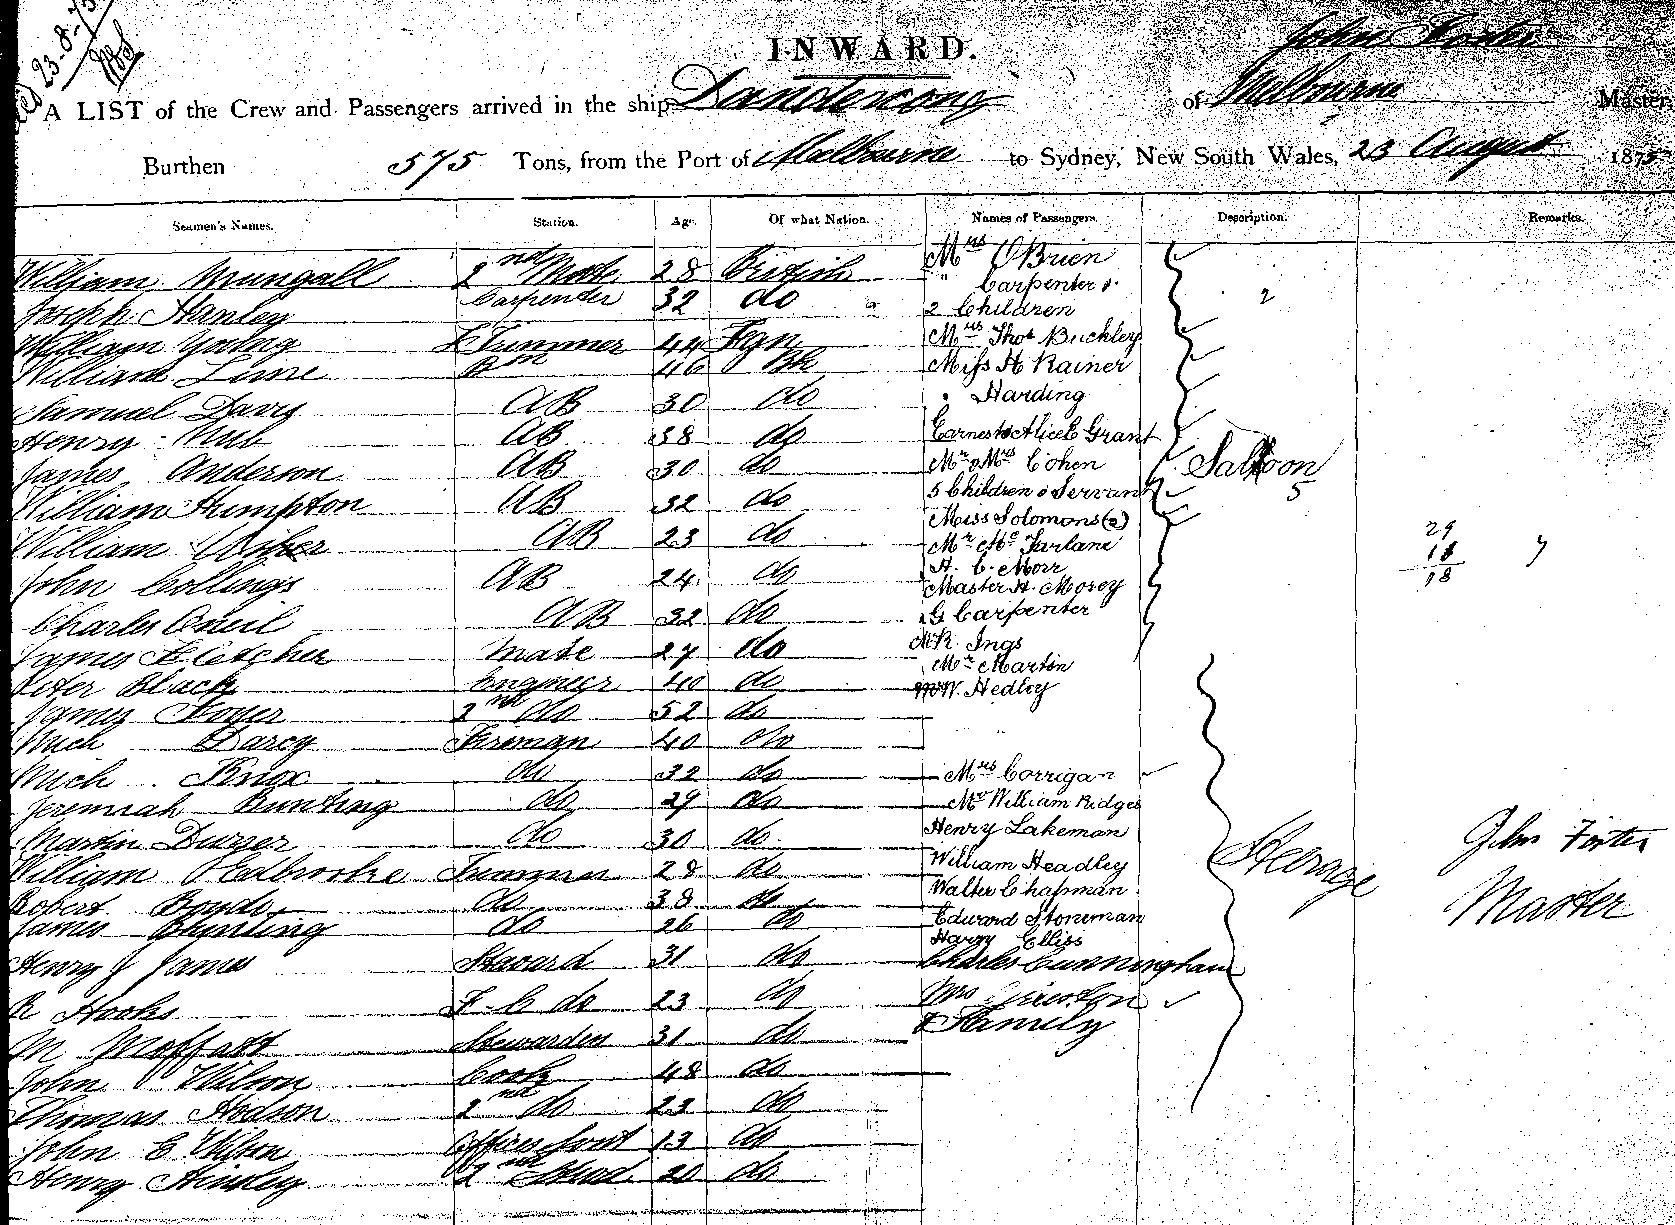 23-8-75
John Foster
INWARD.
A LIST of the Crew and Passengers arrived in the ship Dandenong of Melbourne Master,
Burthen 575 Tons, from the Port of Melbourne to Sydney, New South Wales, 23 August 1875
Seamen's Names. Station. Age. Of what Nation. Names of Passengers. Description. Remarks.
William Mungall 2nd Mate 28 British Mrs O'Brien
Joseph Hanley Carpenter 32 do " Carpenter &
2 Children 2
William Young Trimmer 44 Fgn Mrs Thos Buckley
William Lime 46 Bh Miss H Rainer
Samuel Davy AB 30 do " Harding
Henry AB 38 do Earnest & Alice E Grant
James Anderson AB 30 do Mr & Mrs Cohen Saloon
William Humpton AB 32 do 5 Children & Servant 5
Miss Solomons (2)
William AB 23 do Mr McFarlane 29
John Collings AB 24 do H. C. Morr 18
Master H. Morey 18
Charles Oneil AB 32 do G Carpenter
James Fletcher Mate 27 do R. Ings
Mr Martin
Peter Black Engineer 40 do W. Hedley
James 2nd do 52 do
Mich Darcy Fireman 40 do
Mich Knox do 32 do Mrs Corrigan
Jeremiah Bunting do 29 do Mr William Ridges
Martin Dwyer do 30 do Henry Lakeman John Foster
William Edbrooke Trimmer 28 do William Headley Steerage Master
Robert Boyds do 38 do Walter Chapman
James Bunting do 26 do Edward Stoneman
Harry Elliss
Henry J James Steward 31 do Charles Cunningham
R Hooks F-C do 23 do Mrs
M Moffatt Stewardess 31 do & Family
John Wilson Cook 48 do
Thomas Hodson 2nd do 23 do
John C Wilson Officers Servt 13 do
Henry Hinsley 2nd Stwd. 20 do